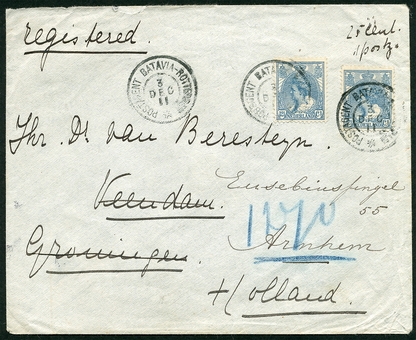 registered.
25 cent.
POSTAGENT BATAVIA-ROTTERDAM
3
DEC
11
POSTAGENT BATAVIA
3
DEC
11
POSTAGENT BATAVIA
3
DEC
11
Jhr. Dr. van Beresteyn.
Eusebiussingel
55
Veendam.
Groningen.
Arnhem
Holland.